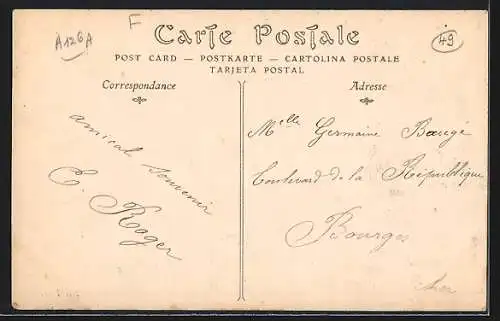 A126A
F
49
Carte Postale
POST CARD — POSTKARTE — CARTOLINA POSTALE
TARJETA POSTAL
Correspondance
Adresse
amical souvenir
E. Roger
Melle Germaine
Boulevard de la République
Bourges
cher